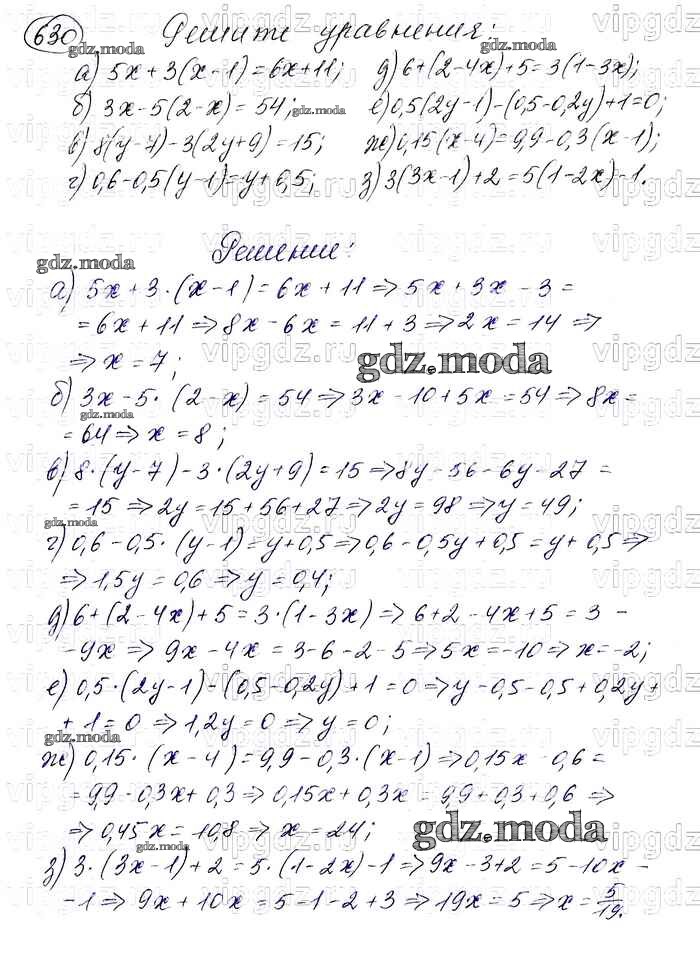 630 Решите уравнения:
а) 5x+3(x-1)=6x+11; д) 6+(2-4x)+5=3(1-3x);
б) 3x-5(2-x)=54; е) 0,5(2y-1)-(0,5-0,2y)+1=0;
в) 8(y-7)-3(2y+9)=15; ж) 0,15(x-4)=9,9-0,3(x-1);
г) 0,6-0,5(y-1)=y+0,5; з) 3(3x-1)+2=5(1-2x)-1.
Решение:
а) 5x+3·(x-1)=6x+11⇒5x+3x-3=
=6x+11⇒8x-6x=11+3⇒2x=14⇒
⇒x=7;
gdz.moda
б) 3x-5·(2-x)=54⇒3x-10+5x=54⇒8x=
=64⇒x=8;
в) 8·(y-7)-3·(2y+9)=15⇒8y-56-6y-27=
=15⇒2y=15+56+27⇒2y=98⇒y=49;
г) 0,6-0,5·(y-1)=y+0,5⇒0,6-0,5y+0,5=y+0,5⇒
⇒1,5y=0,6⇒y=0,4;
д) 6+(2-4x)+5=3·(1-3x)⇒6+2-4x+5=3-
-9x⇒9x-4x=3-6-2-5⇒5x=-10⇒x=-2;
е) 0,5·(2y-1)-(0,5-0,2y)+1=0⇒y-0,5-0,5+0,2y+
+1=0⇒1,2y=0⇒y=0;
ж) 0,15·(x-4)=9,9-0,3·(x-1)⇒0,15x-0,6=
=9,9-0,3x+0,3⇒0,15x+0,3x=9,9+0,3+0,6⇒
⇒0,45x=10,8⇒x=24;
gdz.moda
з) 3·(3x-1)+2=5·(1-2x)-1⇒9x-3+2=5-10x-
-1⇒9x+10x=5-1-2+3⇒19x=5⇒x=5/19.